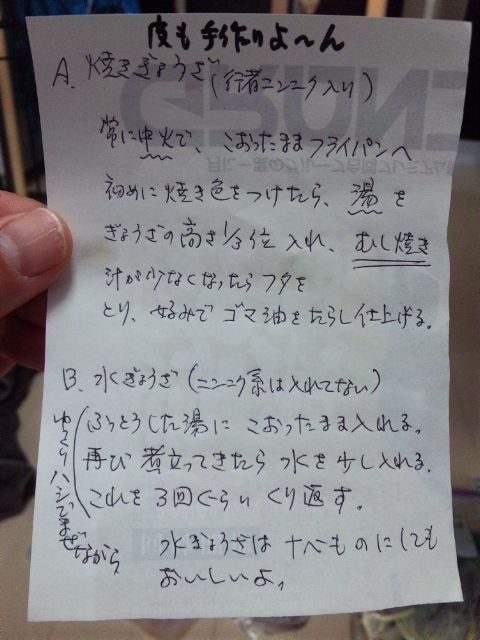 皮も手作りよ〜ん
A. 焼きぎょうざ(行者ニンニク入り)
常に中火で、こおったままフライパンへ
初めに焼き色をつけたら、湯を
ぎょうざの高さ1/3位入れ、むし焼き
汁が少なくなったらフタを
とり、好みでゴマ油をたらし仕上げる。
B. 水ぎょうざ(ニンニク系は入れてない)
ふっとうした湯にこおったまま入れる。
再び煮立ってきたら水を少し入れる。
これを3回ぐらいくり返す。
ゆっくりハシでまぜながら
水ぎょうざは ナベものにしても
おいしいよ。